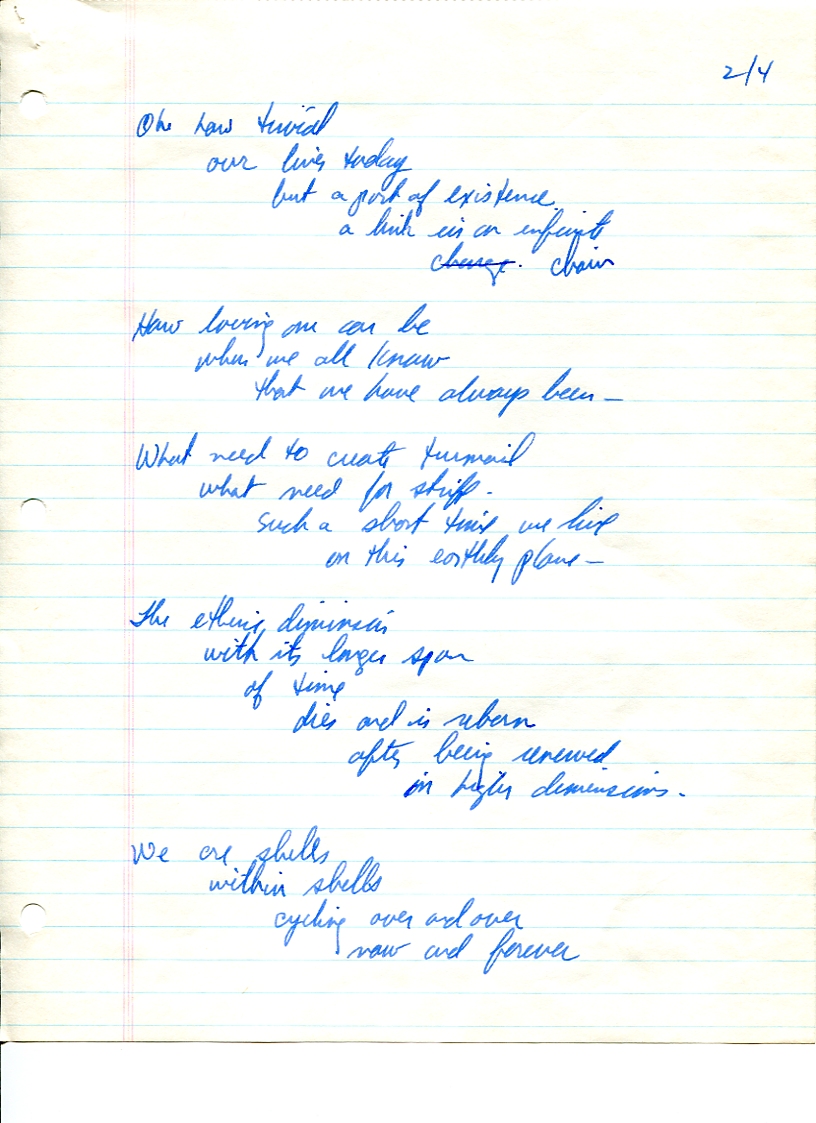 2/4
Oh how trivial
our lives today
but a part of existence
a link in an infinite
change. chain
How loving one can be
when we all know
that we have always been —
What need to create turmoil
what need for strife.
Such a short time we live
on this earthly plane —
The etheric dimension
with its longer span
of time
dies and is reborn
after being renewed
in higher dimensions.
We are shells
within shells
cycling over and over
now and forever